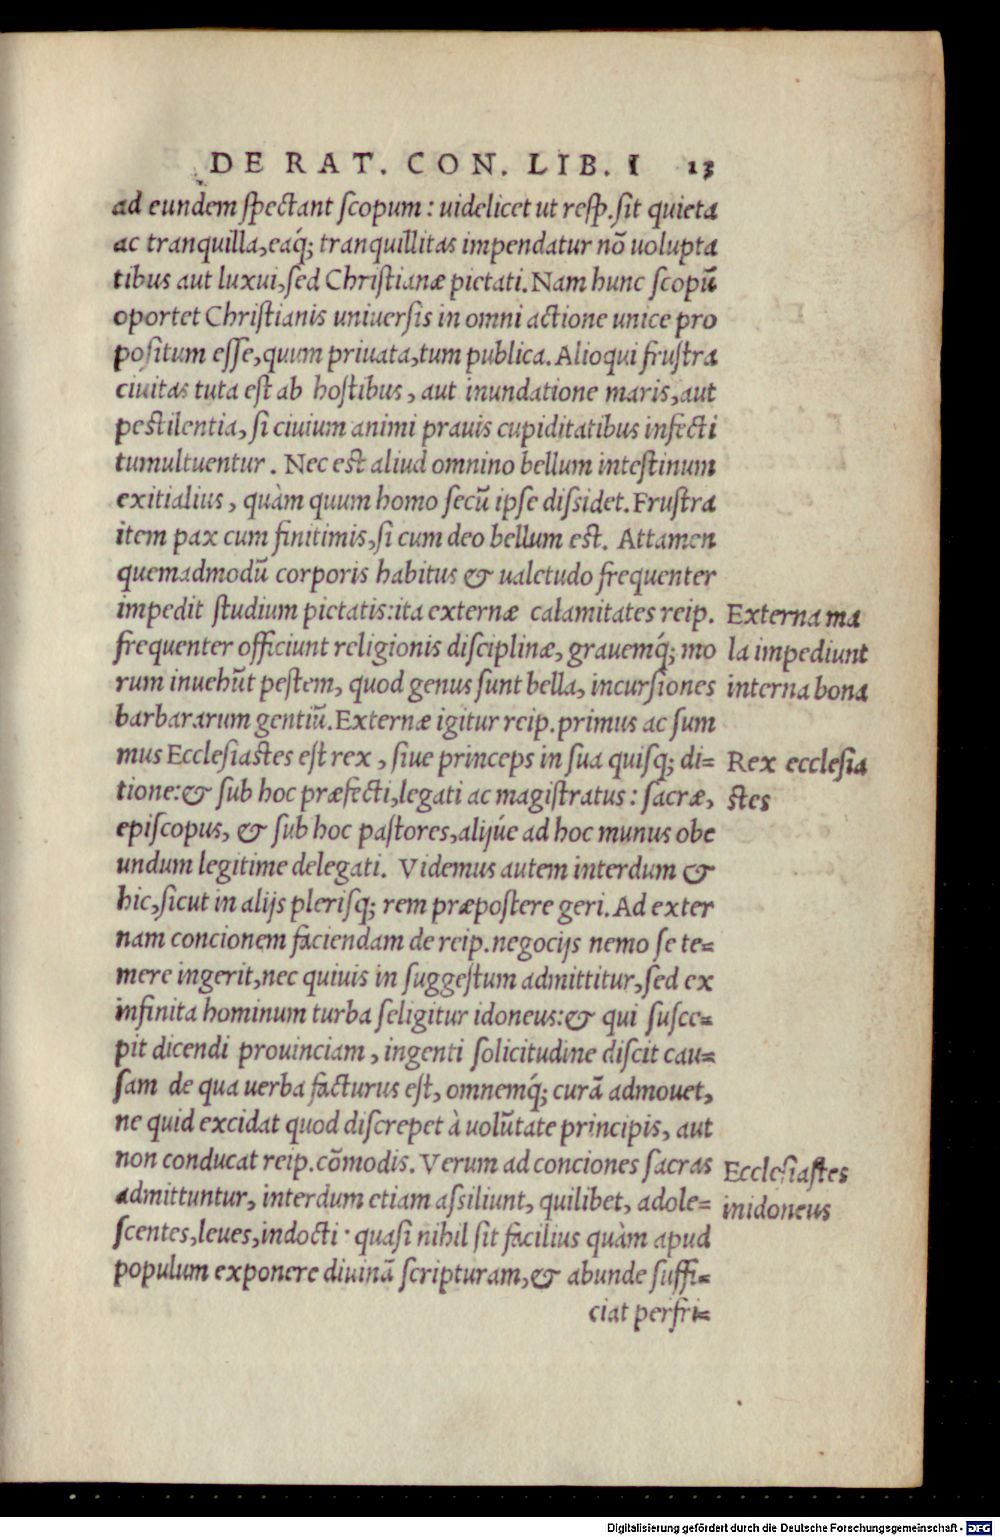 DE RAT. CON. LIB. I 13
ad eundem spectant scopum: uidelicet ut resp. sit quieta
ac tranquilla, eaq́; tranquillitas impendatur nõ uolupta
tibus aut luxui, sed Christianæ pietati. Nam hunc scopũ
oportet Christianis uniuersis in omni actione unice pro
positum esse, quum priuata, tum publica. Alioqui frustra
ciuitas tuta est ab hostibus, aut inundatione maris, aut
pestilentia, si ciuium animi prauis cupiditatibus infecti
tumultuentur. Nec est aliud omnino bellum intestinum
exitialius, quàm quum homo secũ ipse dissidet. Frustra
item pax cum finitimis, si cum deo bellum est. Attamen
quemadmodũ corporis habitus & ualetudo frequenter
impedit studium pietatis: ita externæ calamitates reip.
frequenter officiunt religionis disciplinæ, grauemq́; mo
rum inuehũt pestem, quod genus sunt bella, incursiones
barbararum gentiũ. Externæ igitur reip. primus ac sum
mus Ecclesiastes est rex, siue princeps in sua quisq; di=
tione: & sub hoc præfecti, legati ac magistratus: sacræ,
episcopus, & sub hoc pastores, alijúe ad hoc munus obe
undum legitime delegati. Videmus autem interdum &
hic, sicut in alijs plerisq; rem præpostere geri. Ad exter
nam concionem faciendam de reip. negocijs nemo se te=
mere ingerit, nec quiuis in suggestum admittitur, sed ex
infinita hominum turba seligitur idoneus: & qui susce=
pit dicendi prouinciam, ingenti solicitudine discit cau=
sam de qua uerba facturus est, omnemq́; curã admouet,
ne quid excidat quod discrepet à uolũtate principis, aut
non conducat reip. cõmodis. Verum ad conciones sacras
admittuntur, interdum etiam assiliunt, quilibet, adole=
scentes, leues, indocti · quasi nihil sit facilius quàm apud
populum exponere diuinã scripturam, & abunde suffi=
ciat perfri=
Externa ma
la impediunt
interna bona
Rex ecclesia
stes
Ecclesiastes
inidoneus
Digitalisierung gefördert durch die Deutsche Forschungsgemeinschaft - DFG